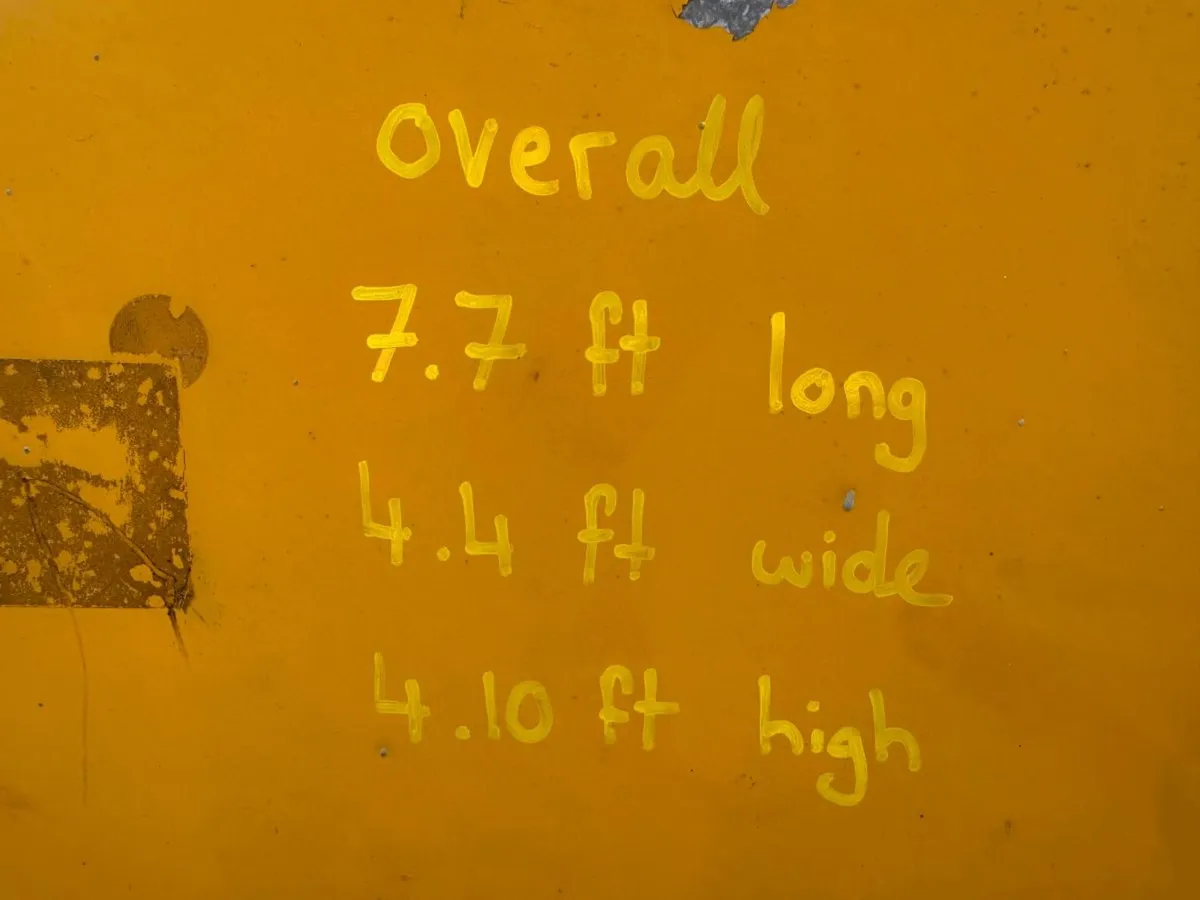 overall
7.7 ft long
4.4 ft wide
4.10 ft high